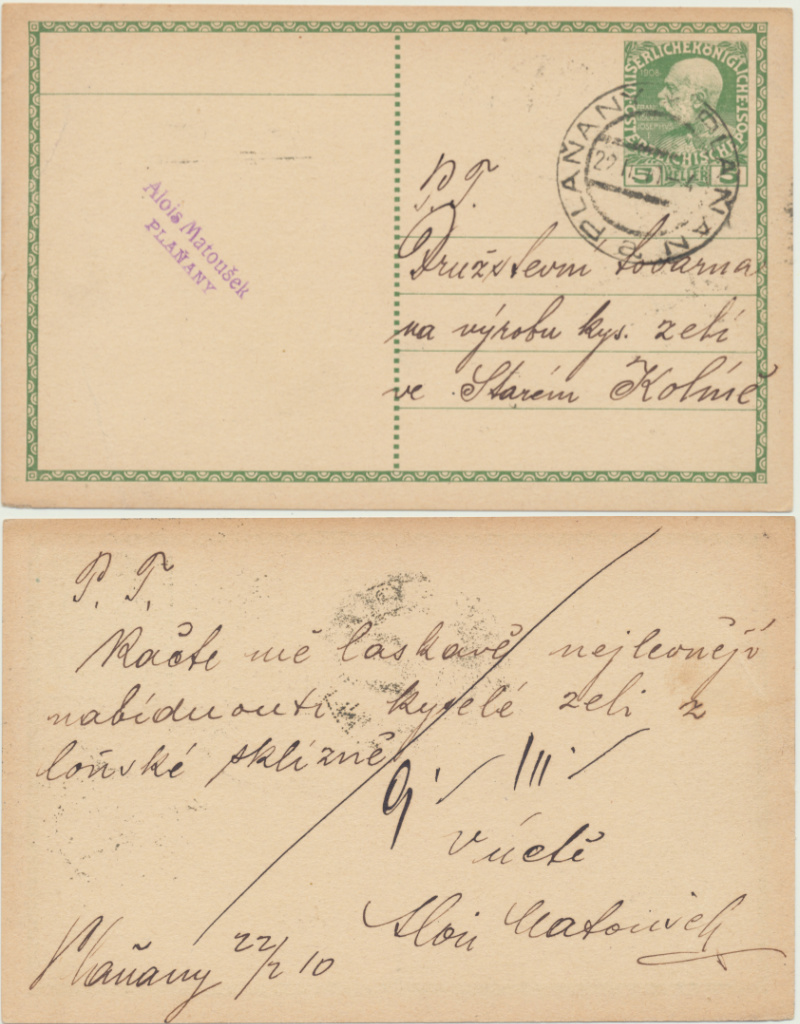 KAISERLICHE KÖNIGLICHE ÖSTERREICHISCHE
1908
5 HELLER 5
PLAŇANY PLAŇAN
Alois Matoušek
PLAŇANY
P. T.
Družstevní továrna
na výrobu kys. zelí
ve Starém Kolíně
P. T.
Račte mě laskavě nejlevněji
nabídnouti kyselé zelí z
loňské sklizně
9/III
V úctě
Alois Matoušek
Plaňany 22/2 10